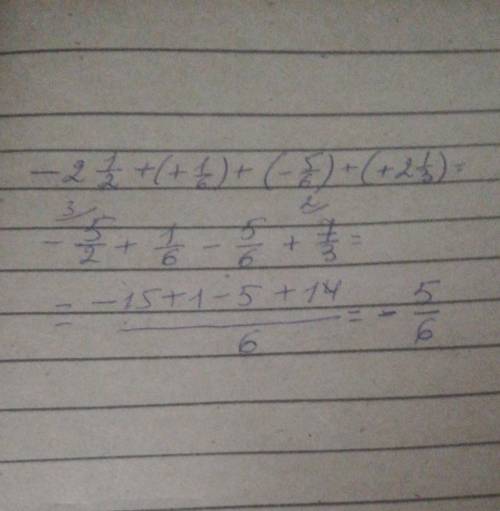 -2 1/2 + (+1/6) + (-5/6) + (+2 1/3) =
3/ 2/
-5/2 + 1/6 - 5/6 + 7/3 =
= (-15+1-5+14)/6 = -5/6